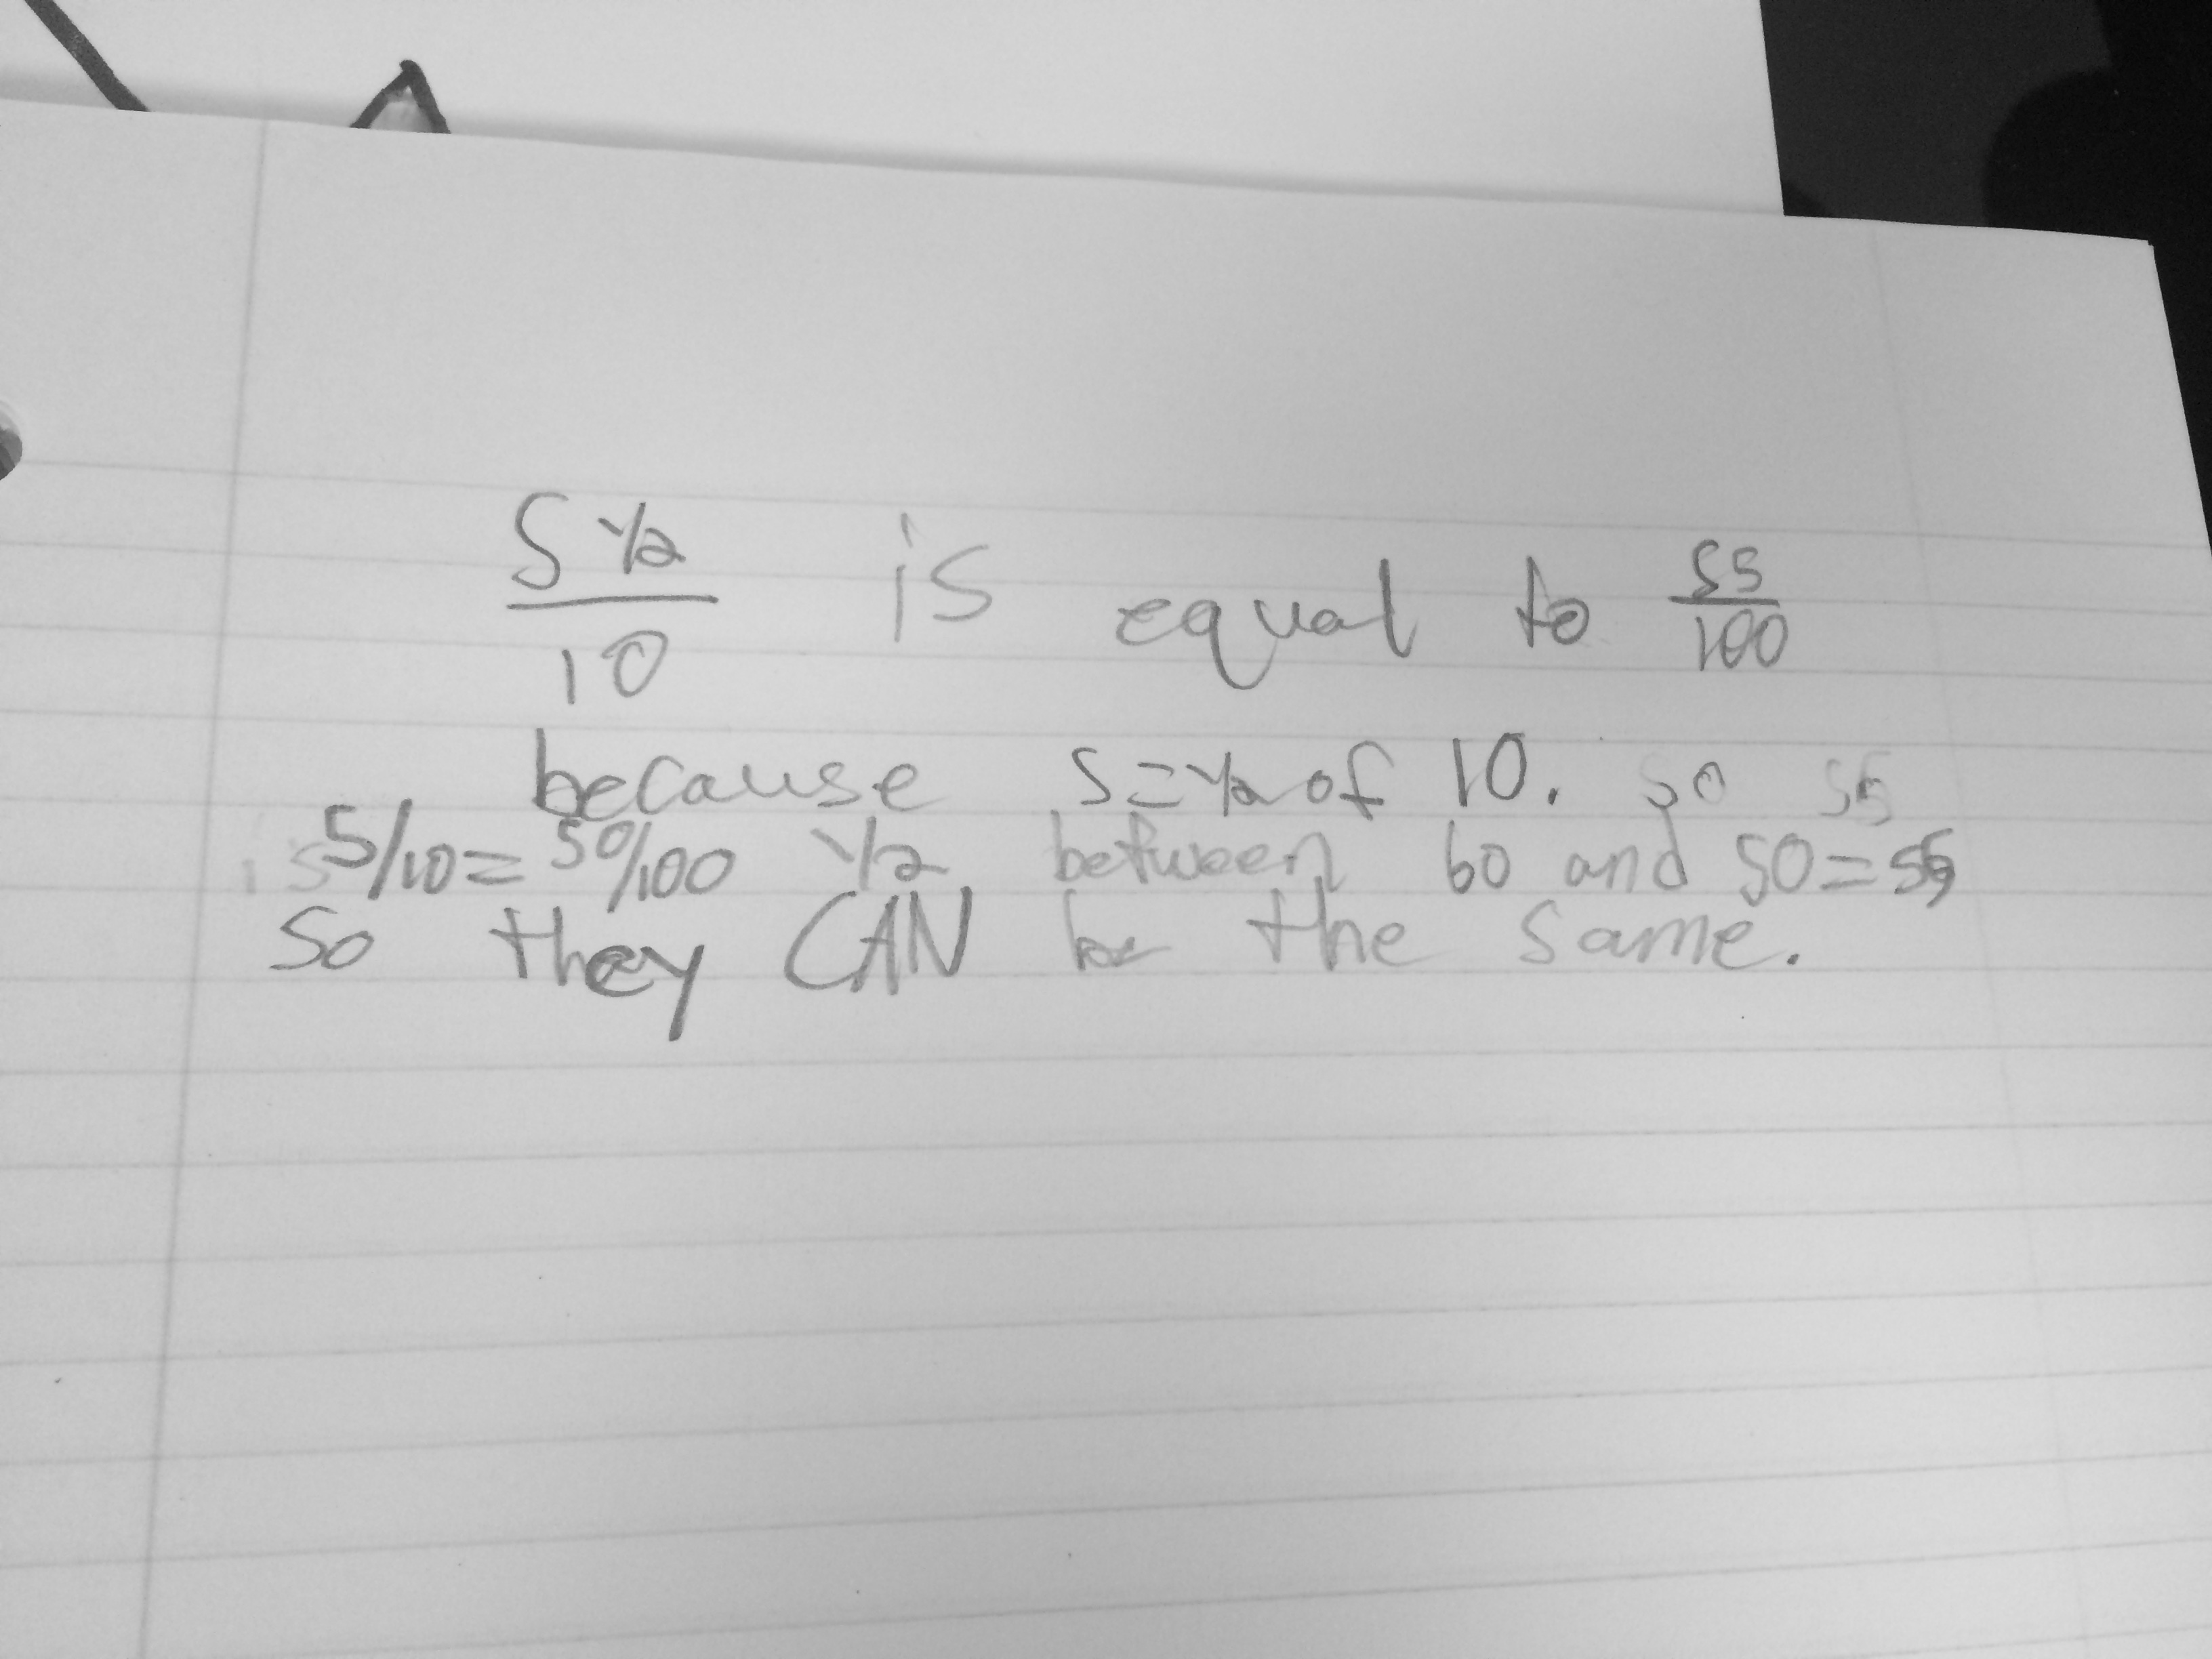 5 1/2 / 10 is equal to 55/100
because 5=1/2 of 10. so 55
is 5/10=50/100 1/2 between 60 and 50=55
So they CAN be the same.